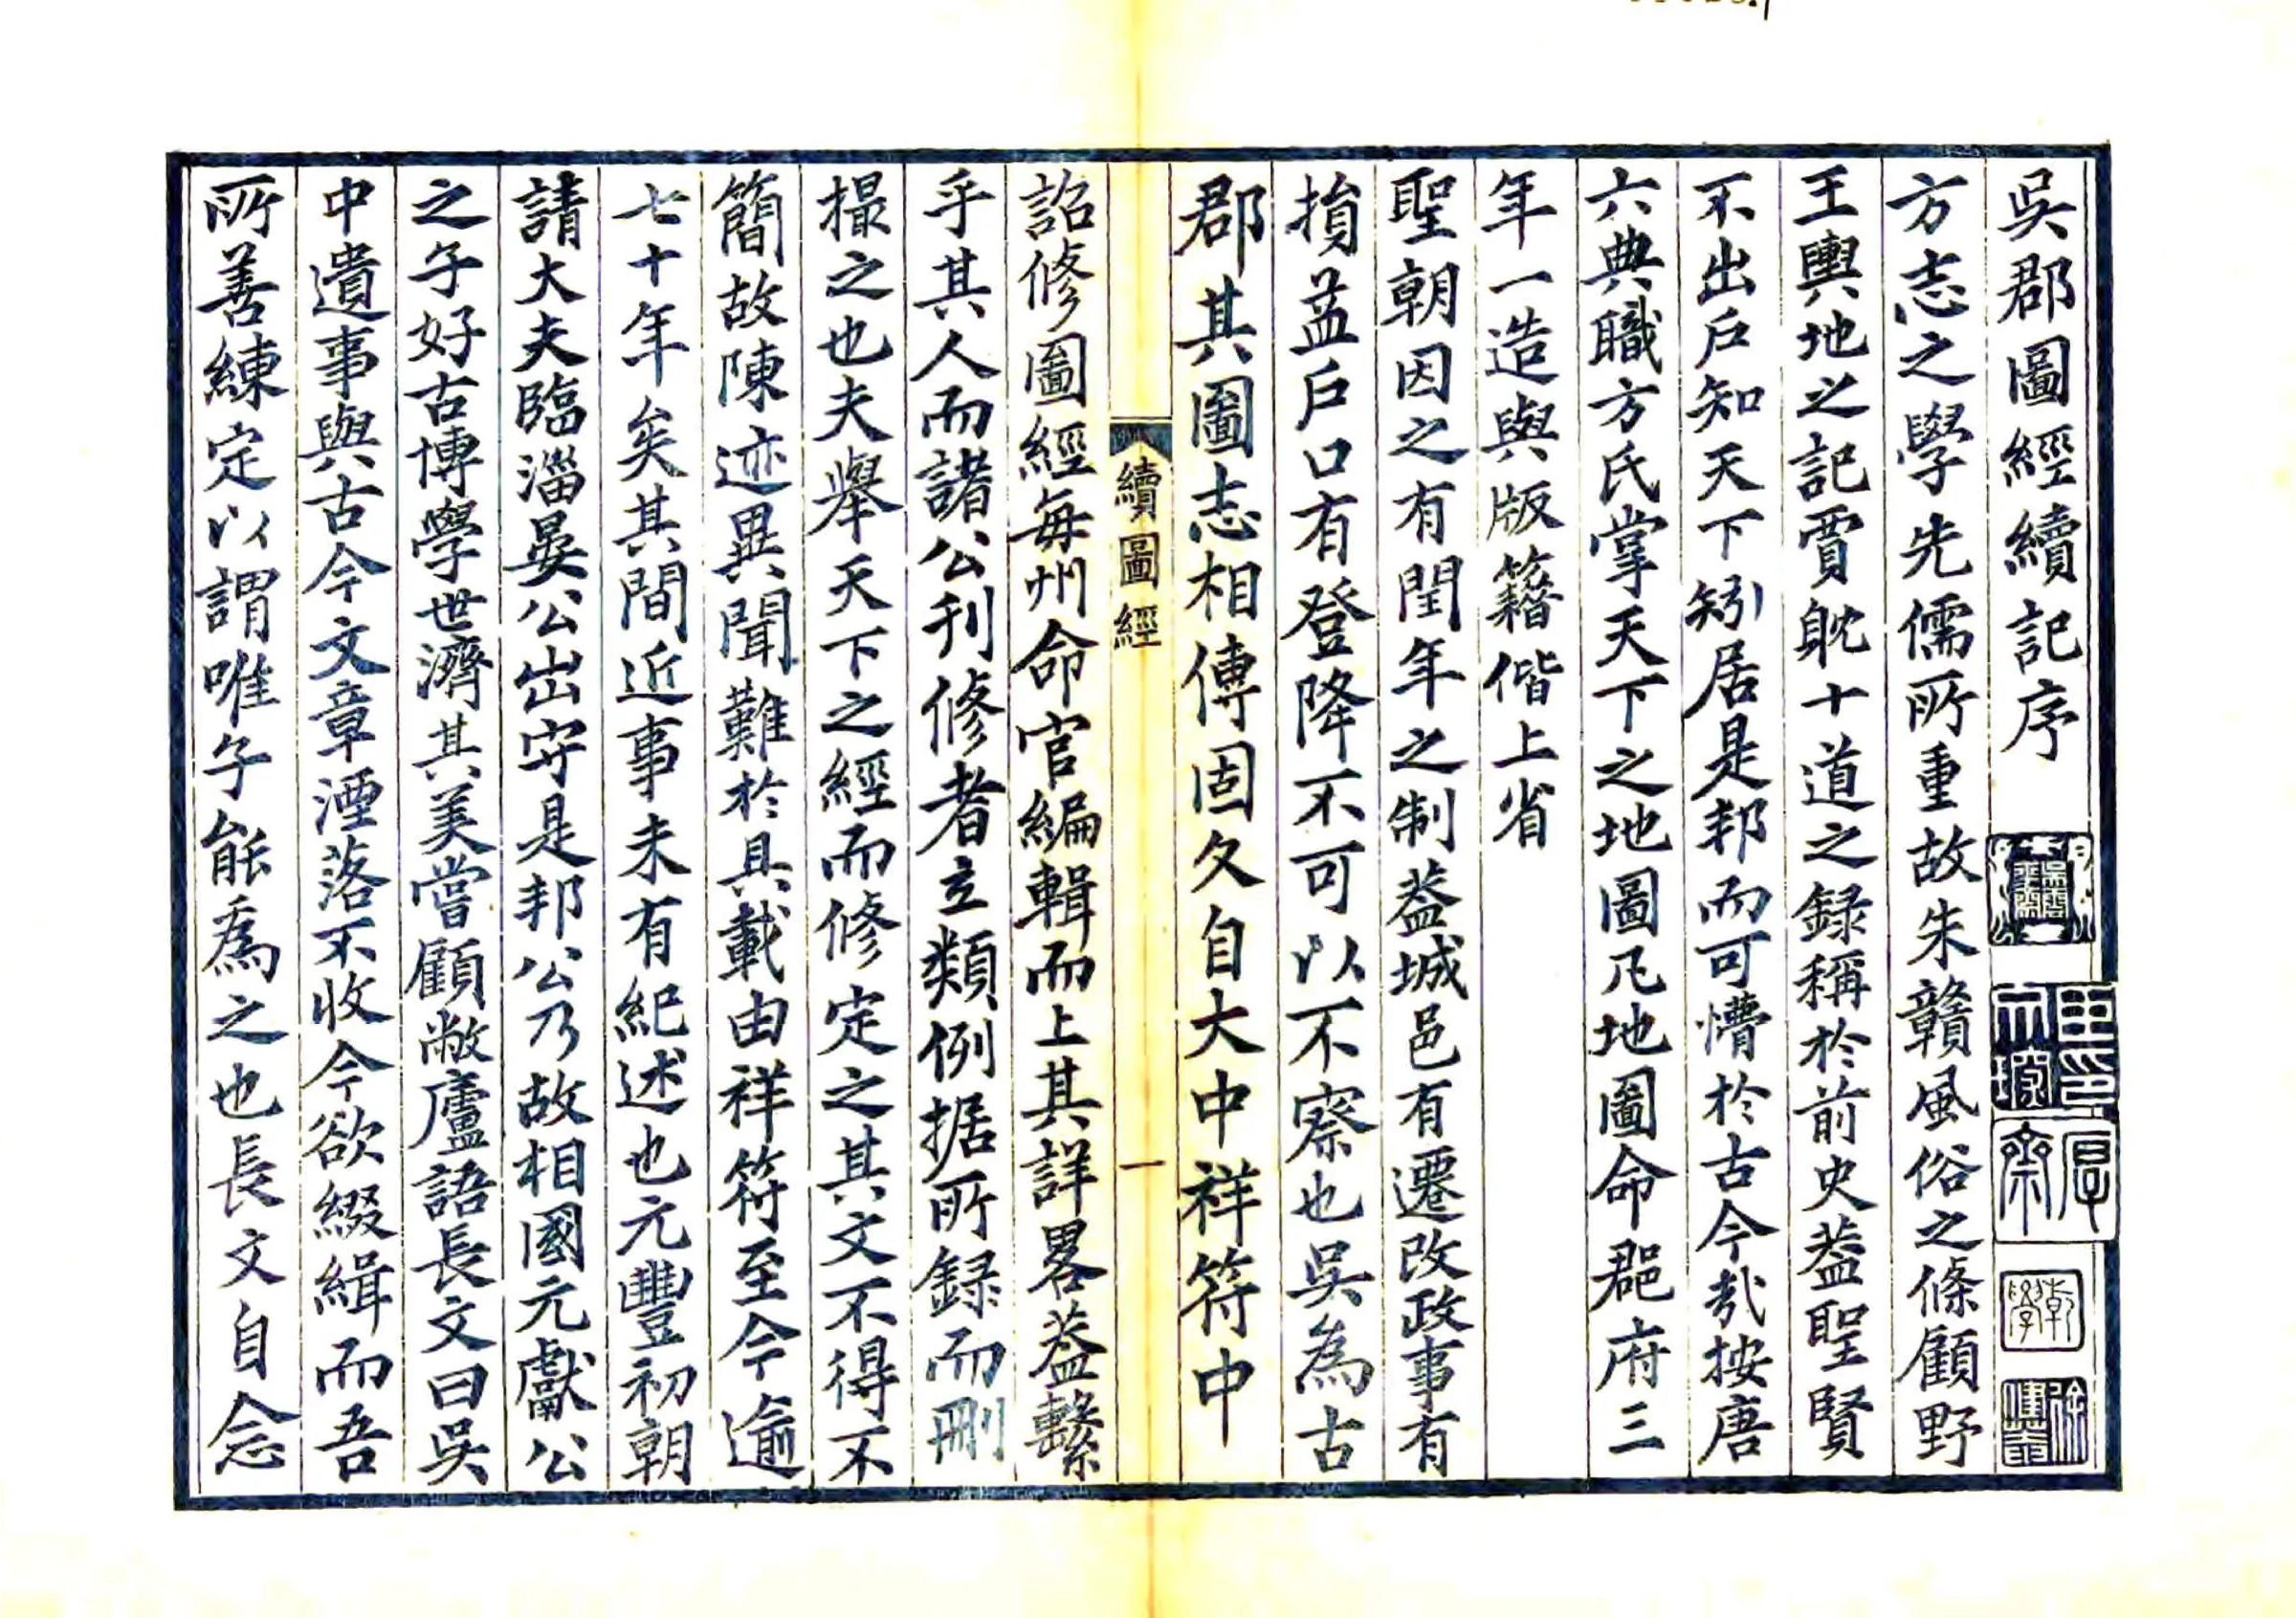 吳郡圖經續記序
方志之學先儒所重故朱贛風俗之條顧野
王輿地之記賈躭十道之録稱於前史葢聖賢
不出戶知天下矧居是邦而可懵於古今哉按唐
六典職方氏掌天下之地圖凡地圖命郡府三
年一造與版籍偕上省
聖朝因之有閏年之制葢城邑有遷改政事有
損益戶口有登降不可以不察也吳為古
郡其圖志相傳固久自大中祥符中
續圖經
一
詔修圖經每州命官編輯而上其詳畧葢繫
乎其人而諸公刋修者立類例据所録而刪
撮之也夫舉天下之經而修定之其文不得不
簡故陳迹異聞難於具載由祥符至今逾
七十年矣其間近事未有紀述也元豐初朝
請大夫臨淄晏公出守是邦公乃故相國元獻公
之子好古博學世濟其美嘗顧敝廬語長文曰吳
中遺事與古今文章湮落不收今欲綴緝而吾
所善練定以謂唯子能爲之也長文自念